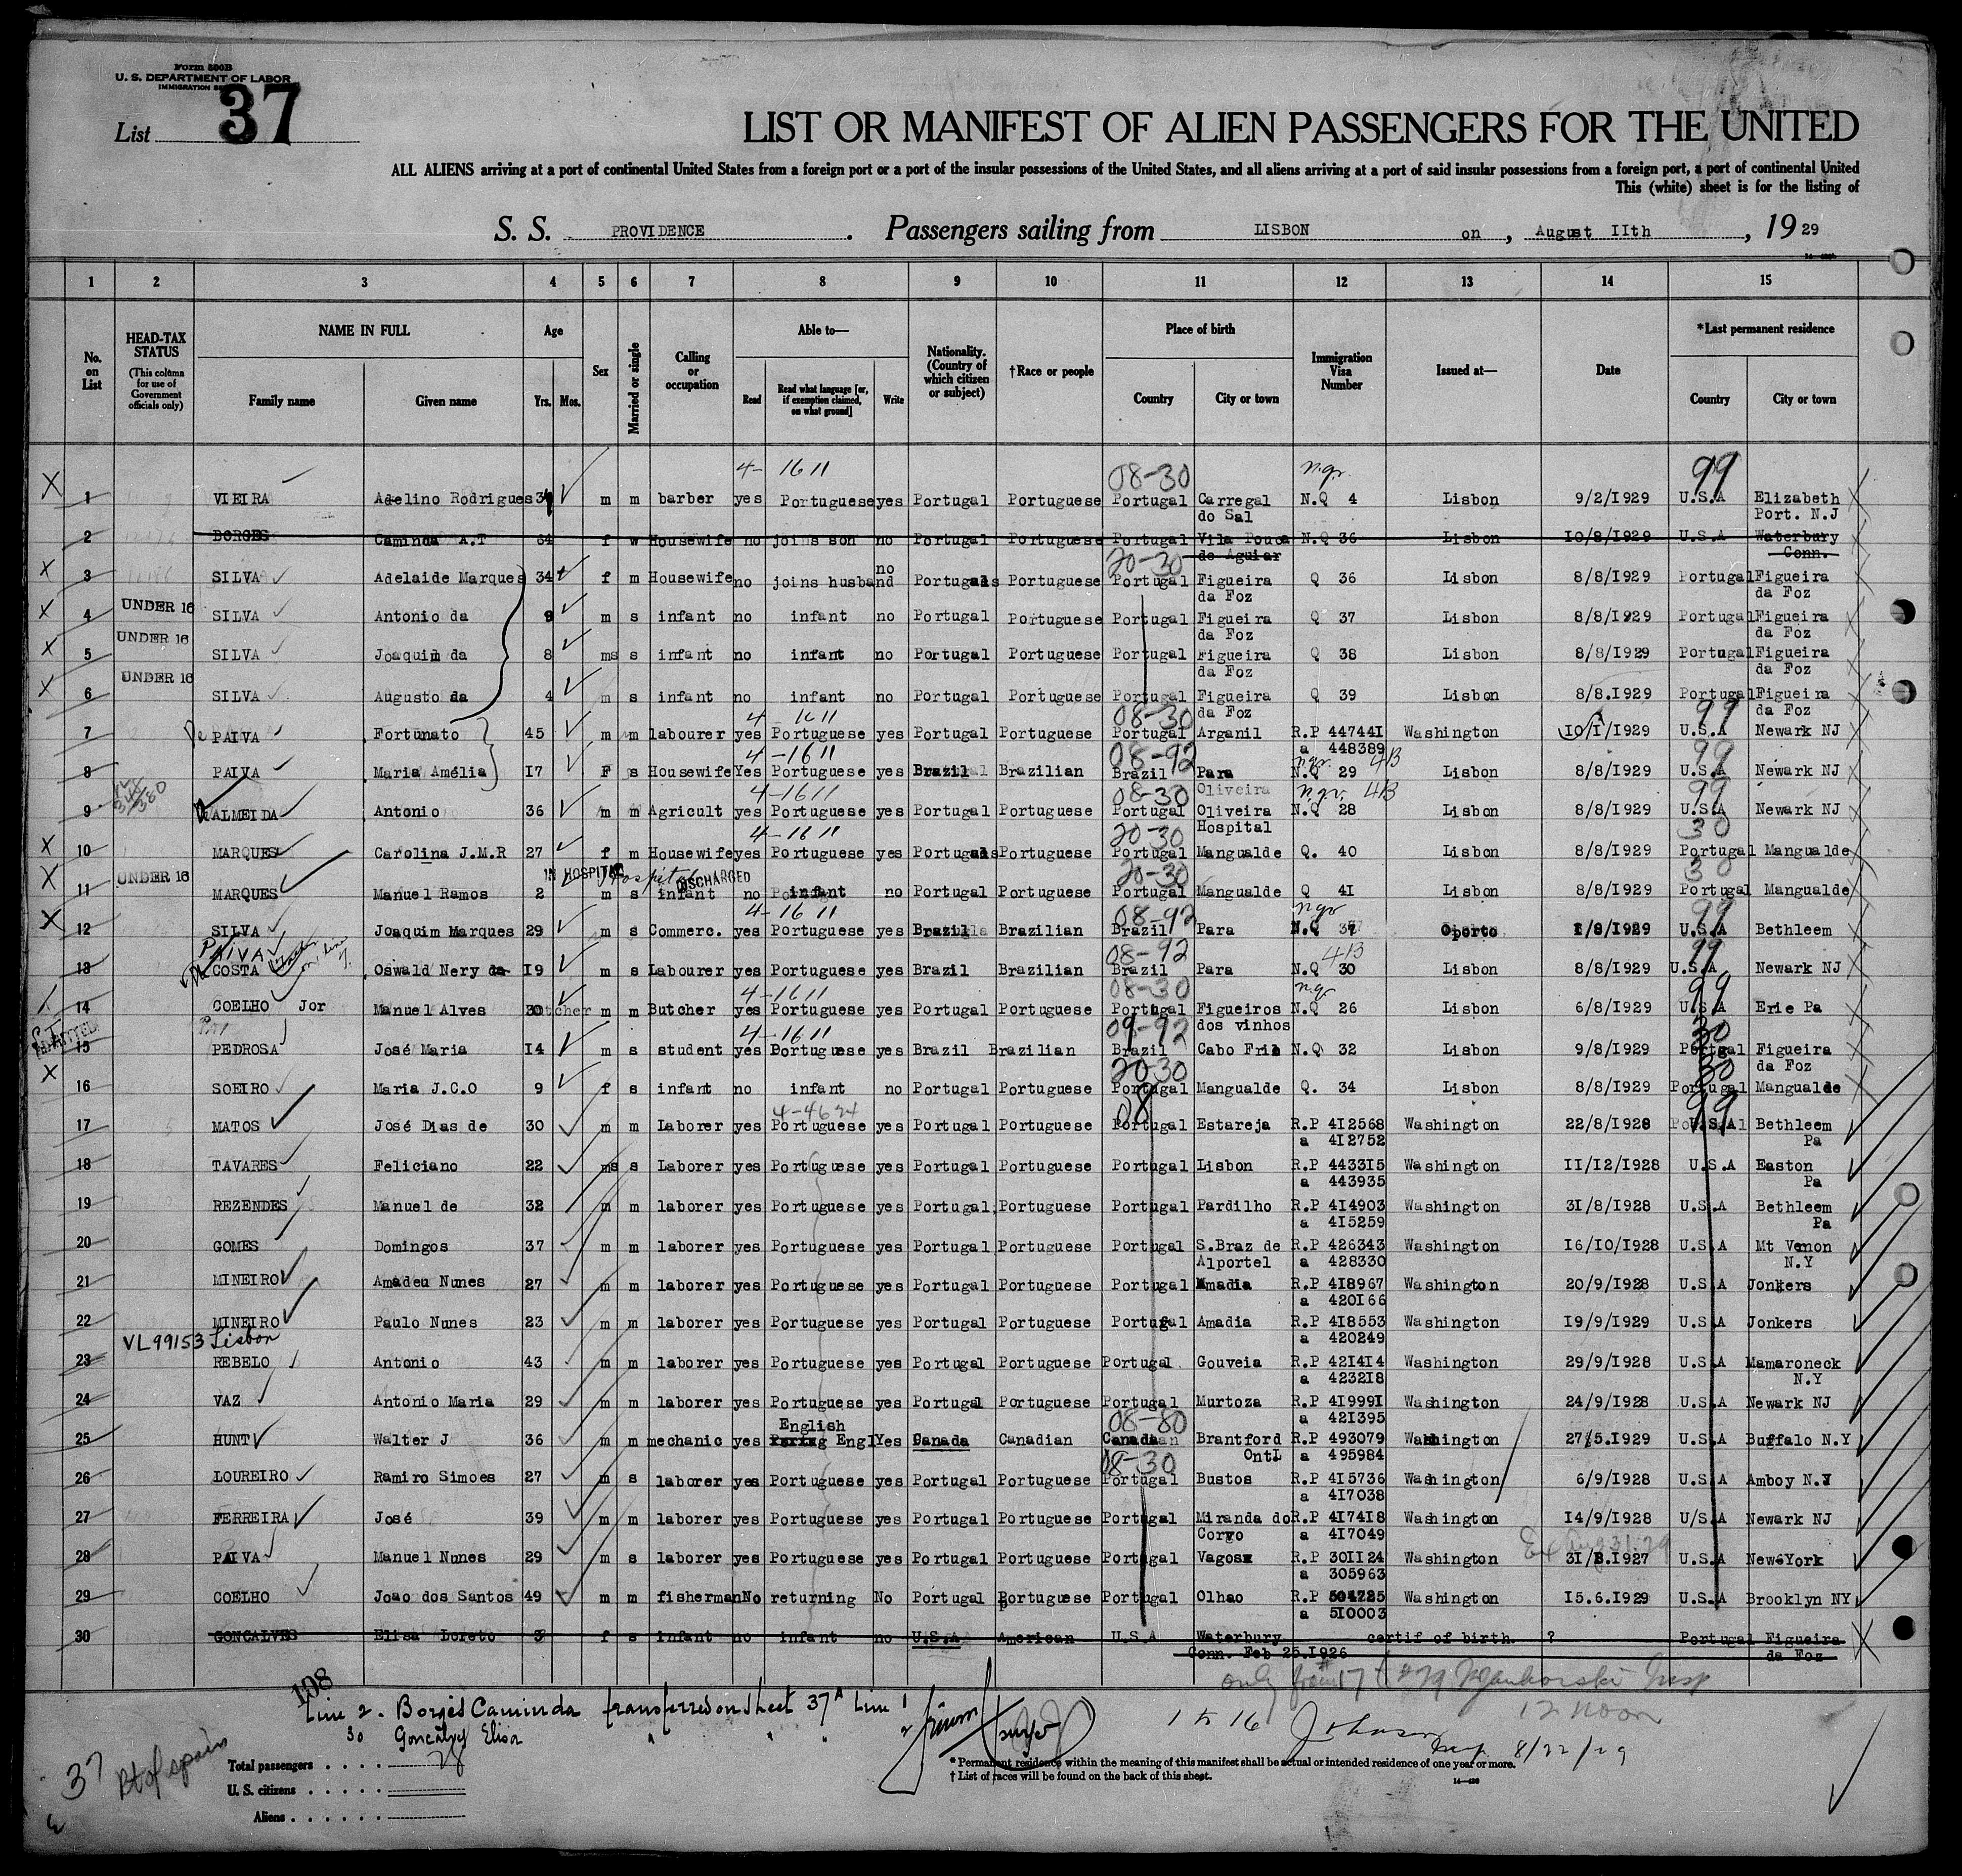 Form 500B
U. S. DEPARTMENT OF LABOR
IMMIGRATION
List 37
LIST OR MANIFEST OF ALIEN PASSENGERS FOR THE UNITED
ALL ALIENS arriving at a port of continental United States from a foreign port or a port of the insular possessions of the United States, and all aliens arriving at a port of said insular possessions from a foreign port, a port of continental United
This (white) sheet is for the listing of
S. S. PROVIDENCE. Passengers sailing from LISBON on, August IIth, 1929
1 2 3 4 5 6 7 8 9 10 11 12 13 14 15
No. on List
HEAD-TAX STATUS (This column for use of Government officials only)
NAME IN FULL Family name Given name
Age Yrs. Mos.
Sex
Married or single
Calling or occupation
Able to— Read Read what language [or, if exemption claimed, on what ground] Write
Nationality. (Country of which citizen or subject)
†Race or people
Place of birth Country City or town
Immigration Visa Number
Issued at—
Date
*Last permanent residence Country City or town
4- 16 11 08-30 nqr. 99
X 1 VIEIRA Adelino Rodrigues 34 m m barber yes Portuguese yes Portugal Portuguese Portugal Carregal do Sal N.Q 4 Lisbon 9/2/I929 U.S.A Elizabeth Port. N.J
2 BORGES Caminda A.T 64 f w Housewife no joins son no Portugal Portuguese Portugal Vila Pouca de Aguiar N.Q 36 Lisbon IO/8/I929 U.S.A Waterbury Conn.
20-30
X 3 SILVA Adelaide Marques 34 f m Housewife no joins husband no Portugal Portuguese Portugal Figueira da Foz Q 36 Lisbon 8/8/I929 Portugal Figueira da Foz
X 4 UNDER 16 SILVA Antonio da 9 m s infant no infant no Portugal Portuguese Portugal Figueira da Foz Q 37 Lisbon 8/8/I929 Portugal Figueira da Foz
X 5 UNDER 16 SILVA Joaquim da 8 m s infant no infant no Portugal Portuguese Portugal Figueira da Foz Q 38 Lisbon 8/8/I929 Portugal Figueira da Foz
X 6 UNDER 16 SILVA Augusto da 4 m s infant no infant no Portugal Portuguese Portugal Figueira da Foz Q 39 Lisbon 8/8.I929 Portugal Figueira da Foz
4 - 16 11 08-30 99
7 PAIVA Fortunato 45 m m labourer yes Portuguese yes Portugal Portuguese Portugal Arganil R.P 44744I a 448389 Washington IO/I/I929 U.S.A Newark NJ
4 - 16 11 08-92 nqr. 413 99
8 PAIVA Maria Amélia I7 F s Housewife Yes Portuguese yes Brazil Brazilian Brazil Para N.Q 29 Lisbon 8/8/I929 U.S.A Newark NJ
4 - 16 11 08-30 nqr. 413 99
9 ALMEIDA Antonio 36 m m Agricult yes Portuguese yes Portugal Portuguese Portugal Oliveira Hospital N.Q 28 Lisbon 8/8/I929 U.S.A Newark NJ
4 - 16 11 20-30 30
X 10 MARQUES Carolina J.M.R 27 f m Housewife yes Portuguese yes Portugal Portuguese Portugal Mangualde Q. 40 Lisbon 8/8/I929 Portugal Mangualde
IN HOSPITAL Hospital DISCHARGED 20-30 30
X 11 UNDER 16 MARQUES Manuel Ramos 2 m s infant no infant no Portugal Portuguese Portugal Mangualde Q 4I Lisbon 8/8/I929 Portugal Mangualde
4- 16 11 08-92 nqr 99
X 12 SILVA Joaquim Marques 29 m s Commerc. yes Portuguese yes Brazil Brazilian Brazil Para N.Q 37 Oporto I/8/I929 U.S.A Bethleem
PAIVA 08-92 413 99
13 COSTA Oswald Nery da I9 m s Labourer yes Portuguese yes Brazil Brazilian Brazil Para N.Q 30 Lisbon 8/8/I929 U.S.A Newark NJ
4-16 11 08-30 nqr 99
14 COELHO Jor Manuel Alves 30 m m Butcher yes Portuguese yes Portugal Portuguese Portugal Figueiros dos vinhos N.Q 26 Lisbon 6/8/I929 U.S.A Erie Pa
4-16 11 09-92 30
15 PEDROSA José Maria I4 m s student yes Portuguese yes Brazil Brazilian Brazil Cabo Frio N.Q 32 Lisbon 9/8/I929 Portugal Figueira da Foz
20-30 30
X 16 SOEIRO Maria J.C.O 9 f s infant no infant no Portugal Portuguese Portugal Mangualde Q. 34 Lisbon 8/8/I929 Portugal Mangualde
08 99
17 MATOS José Dias de 30 m m Laborer yes Portuguese yes Portugal Portuguese Portugal Estareja R.P 4I2568 a 4I2752 Washington 22/8/I928 U.S.A Bethleem Pa
18 TAVARES Feliciano 22 m s Laborer yes Portuguese yes Portugal Portuguese Portugal Lisbon R.P 4433I5 a 443935 Washington II/I2/I928 U.S.A Easton Pa
19 REZENDES Manuel de 32 m m laborer yes Portuguese yes Portugal Portuguese Portugal Pardilho R.P 4I4903 a 4I5259 Washington 3I/8/I928 U.S.A Bethleem Pa
20 GOMES Domingos 37 m m laborer yes Portuguese yes Portugal Portuguese Portugal S.Braz de Alportel R.P 426343 a 428330 Washington I6/IO/I928 U.S.A Mt Venon N.Y
21 MINEIRO Amadeu Nunes 27 m m laborer yes Portuguese yes Portugal Portuguese Portugal Amadia R.P 4I8967 a 420I66 Washington 20/9/I928 U.S.A Jonkers
22 MINEIRO Paulo Nunes 23 m m laborer yes Portuguese yes Portugal Portuguese Portugal Amadia R.P 4I8553 a 420249 Washington I9/9/I929 U.S.A Jonkers
VL99153 Lisbon
23 REBELO Antonio 43 m m laborer yes Portuguese yes Portugal Portuguese Portugal Gouveia R.P 42I4I4 a 4232I8 Washington 29/9/I928 U.S.A Mamaroneck N.Y
24 VAZ Antonio Maria 29 m m laborer yes Portuguese yes Portugal Portuguese Portugal Murtoza R.P 4I999I a 42I395 Washington 24/9/I928 U.S.A Newark NJ
08-80
25 HUNT Walter J 36 m m mechanic yes English Yes Canada Canadian Canada Brantford Ont R.P 493079 a 495984 Washington 27/5.I929 U.S.A Buffalo N.Y
08-30
26 LOUREIRO Ramiro Simoes 27 m s laborer yes Portuguese yes Portugal Portuguese Portugal Bustos R.P 4I5736 a 4I7038 Washington 6/9/I928 U.S.A Amboy N.J
27 FERREIRA José 39 m m laborer yes Portuguese yes Portugal Portuguese Portugal Miranda do Corvo R.P 4I74I8 a 4I7049 Washington I4/9/I928 U/S.A Newark NJ
28 PAIVA Manuel Nunes 29 m s laborer yes Portuguese yes Portugal Portuguese Portugal Vagos R.P 30II24 a 305963 Washington 3I/8.I927 U.S.A New York
29 COELHO Joao dos Santos 49 m m fisherman No returning No Portugal Portuguese Portugal Olhao R.P 504725 a 5I0003 Washington I5.6.I929 U.S.A Brooklyn NY
30 GONCALVES Elisa Loreto 3 f s infant no infant no U.S.A American U.S.A Waterbury Conn. Feb 25.I926 certif of birth. ? Portugal Figueira da Foz
108
Line 2. Borges Caminda transferred on sheet 37A Line 1
30 Goncalves Elisa " " " 2
1 to 16 Johnson Insp 8/22/29
12 noon
37 Pt of Spain
Total passengers 28
U. S. citizens
Aliens
* Permanent residence within the meaning of this manifest shall be actual or intended residence of one year or more.
† List of races will be found on the back of this sheet.